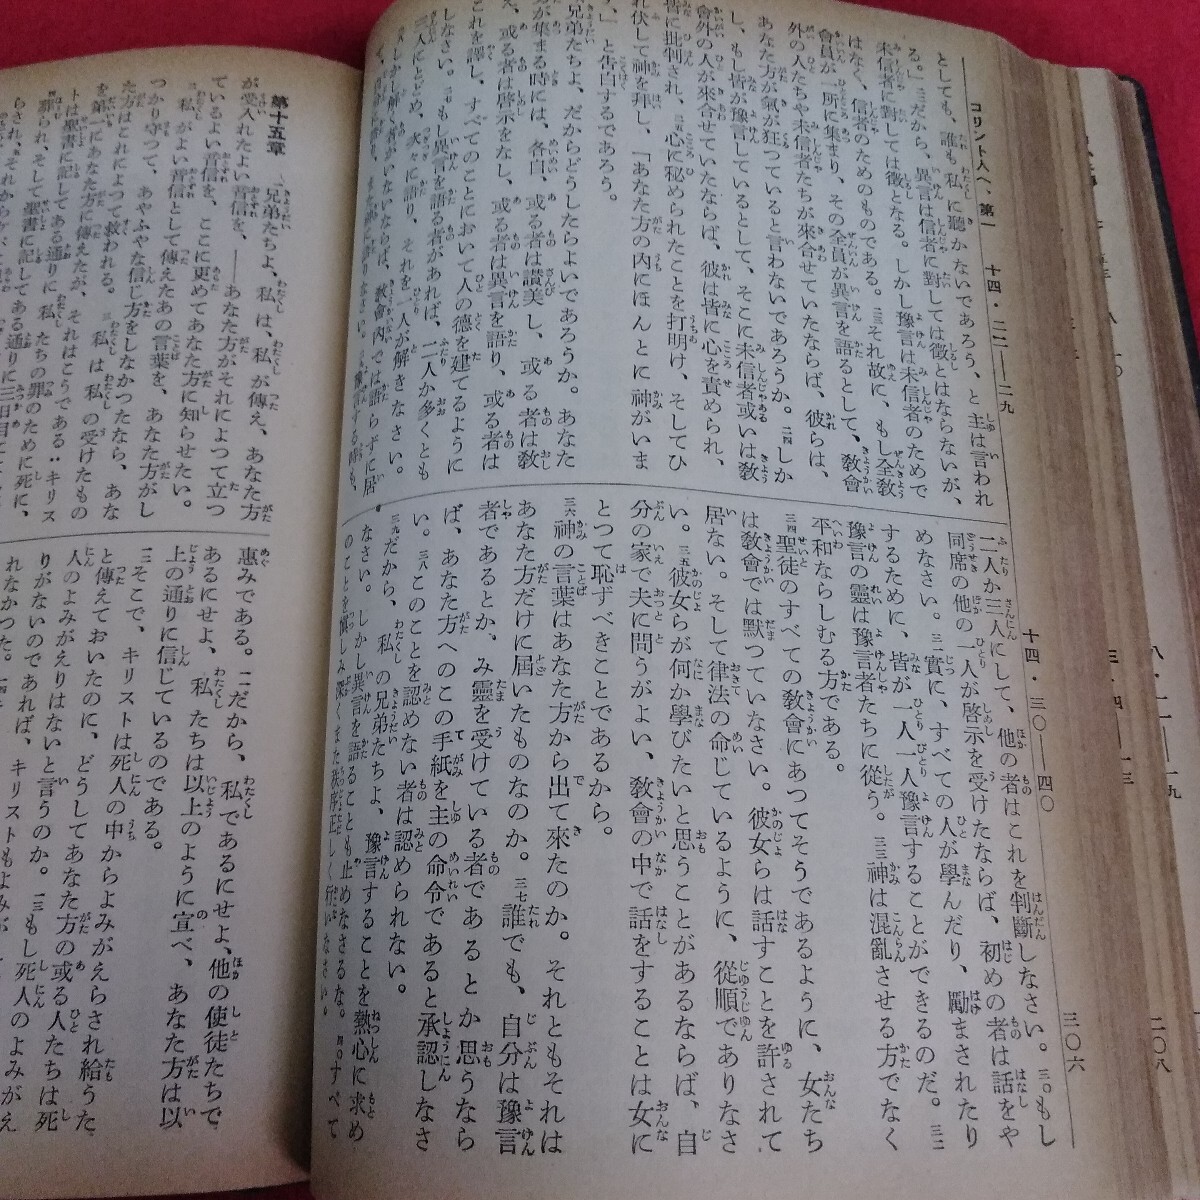 コリント人へ、第一 十四・二二―二九
十四・三〇―四〇
三〇六
としても、誰も私に聽かないであろう、と主は言われ
る。」二二だから、異言は信者に對しては徵とはならないが、
未信者に對しては徵となる。しかし豫言は未信者のためで
はなく、信者のためのものである。二三それ故に、もし全敎
會員が一所に集まり、その全員が異言を語るとして、敎會
外の人たちや未信者たちが來合せていたならば、彼らは、
あなた方が氣が狂つていると言わないであろうか。二四しか
し、もし皆が豫言しているとして、そこに未信者或いは敎
會外の人が來合せていたならば、彼は皆に心を責められ、
皆に批判され、二五心に秘められたことを打明け、そしてひ
れ伏して神を拜し、「あなた方の內にほんとに神がいま
す。」と告白するであろう。
兄弟たちよ、だからどうしたらよいであろうか。あなた
方が集まる時には、各自、或る者は讃美し、或る者は敎
え、或る者は啓示をなし、或る者は異言を語り、或る者は
これを譯し、すべてのことにおいて人の德を建てるように
しなさい。二七もし異言を語る者があれば、二人か多くとも
三人にとどめ、次々に語り、それを一人が解きなさい。
二人か三人にして、他の者はこれを判斷しなさい。三〇もし
同席の他の一人が啓示を受けたならば、初めの者は話をや
めなさい。三一實に、すべての人が學んだり、勵まされたり
するために、皆が一人一人豫言することができるのだ。三二
豫言の靈は豫言者たちに從う。三三神は混亂させる方でなく
平和ならしむる方である。
三四聖徒のすべての敎會にあつてそうであるように、女たち
は敎會では默つていなさい。彼女らは話すことを許されて
居ない。そして律法の命じているように、從順でありなさ
い。三五彼女らが何か學びたいと思うことがあるならば、自
分の家で夫に問うがよい、敎會の中で話をすることは女に
とつて恥ずべきことであるから。
三六神の言葉はあなた方から出て來たのか。それともそれは
あなた方だけに屆いたものなのか。三七誰でも、自分は豫言
者であるとか、み靈を受けている者であるとか思うなら
ば、あなた方へのこの手紙を主の命令であると承認しなさ
い。三八このことを認めない者は認められない。
三九だから、私の兄弟たちよ、豫言することを熱心に求め
なさい。しかし異言を語ることも止めなさるな。四〇すべて
のことを愼しみ深くまた秩序正しく行いなさい。
第十五章
一兄弟たちよ、私は、私が傳え、あなた方
が受入れたよい音信を、――あなた方がそれによつて立つ
ているよい音信を、ここに更めてあなた方に知らせたい。
二私がよい音信として傳えたあの言葉を、あなた方がし
つかり守つて、あやふやな信じ方をしなかつたなら、あな
た方はそれによつて救われる。三私は私の受けたもの
を第一にあなた方に傳えたが、それはこうである：キリス
トは聖書に記してある通りに私たちの罪のために死に、
惠みである。一一だから、私であるにせよ、他の使徒たちで
あるにせよ、私たちは以上のように宣べ、あなた方は以
上の通りに信じているのである。
一二そこで、キリストは死人の中からよみがえらされ給うた
と傳えておいたのに、どうしてあなた方の或る人たちは死
人のよみがえりはないと言うのか。一三もし死人のよみがえ
りがないのであれば、キリストもよみが
れなかつた。一四